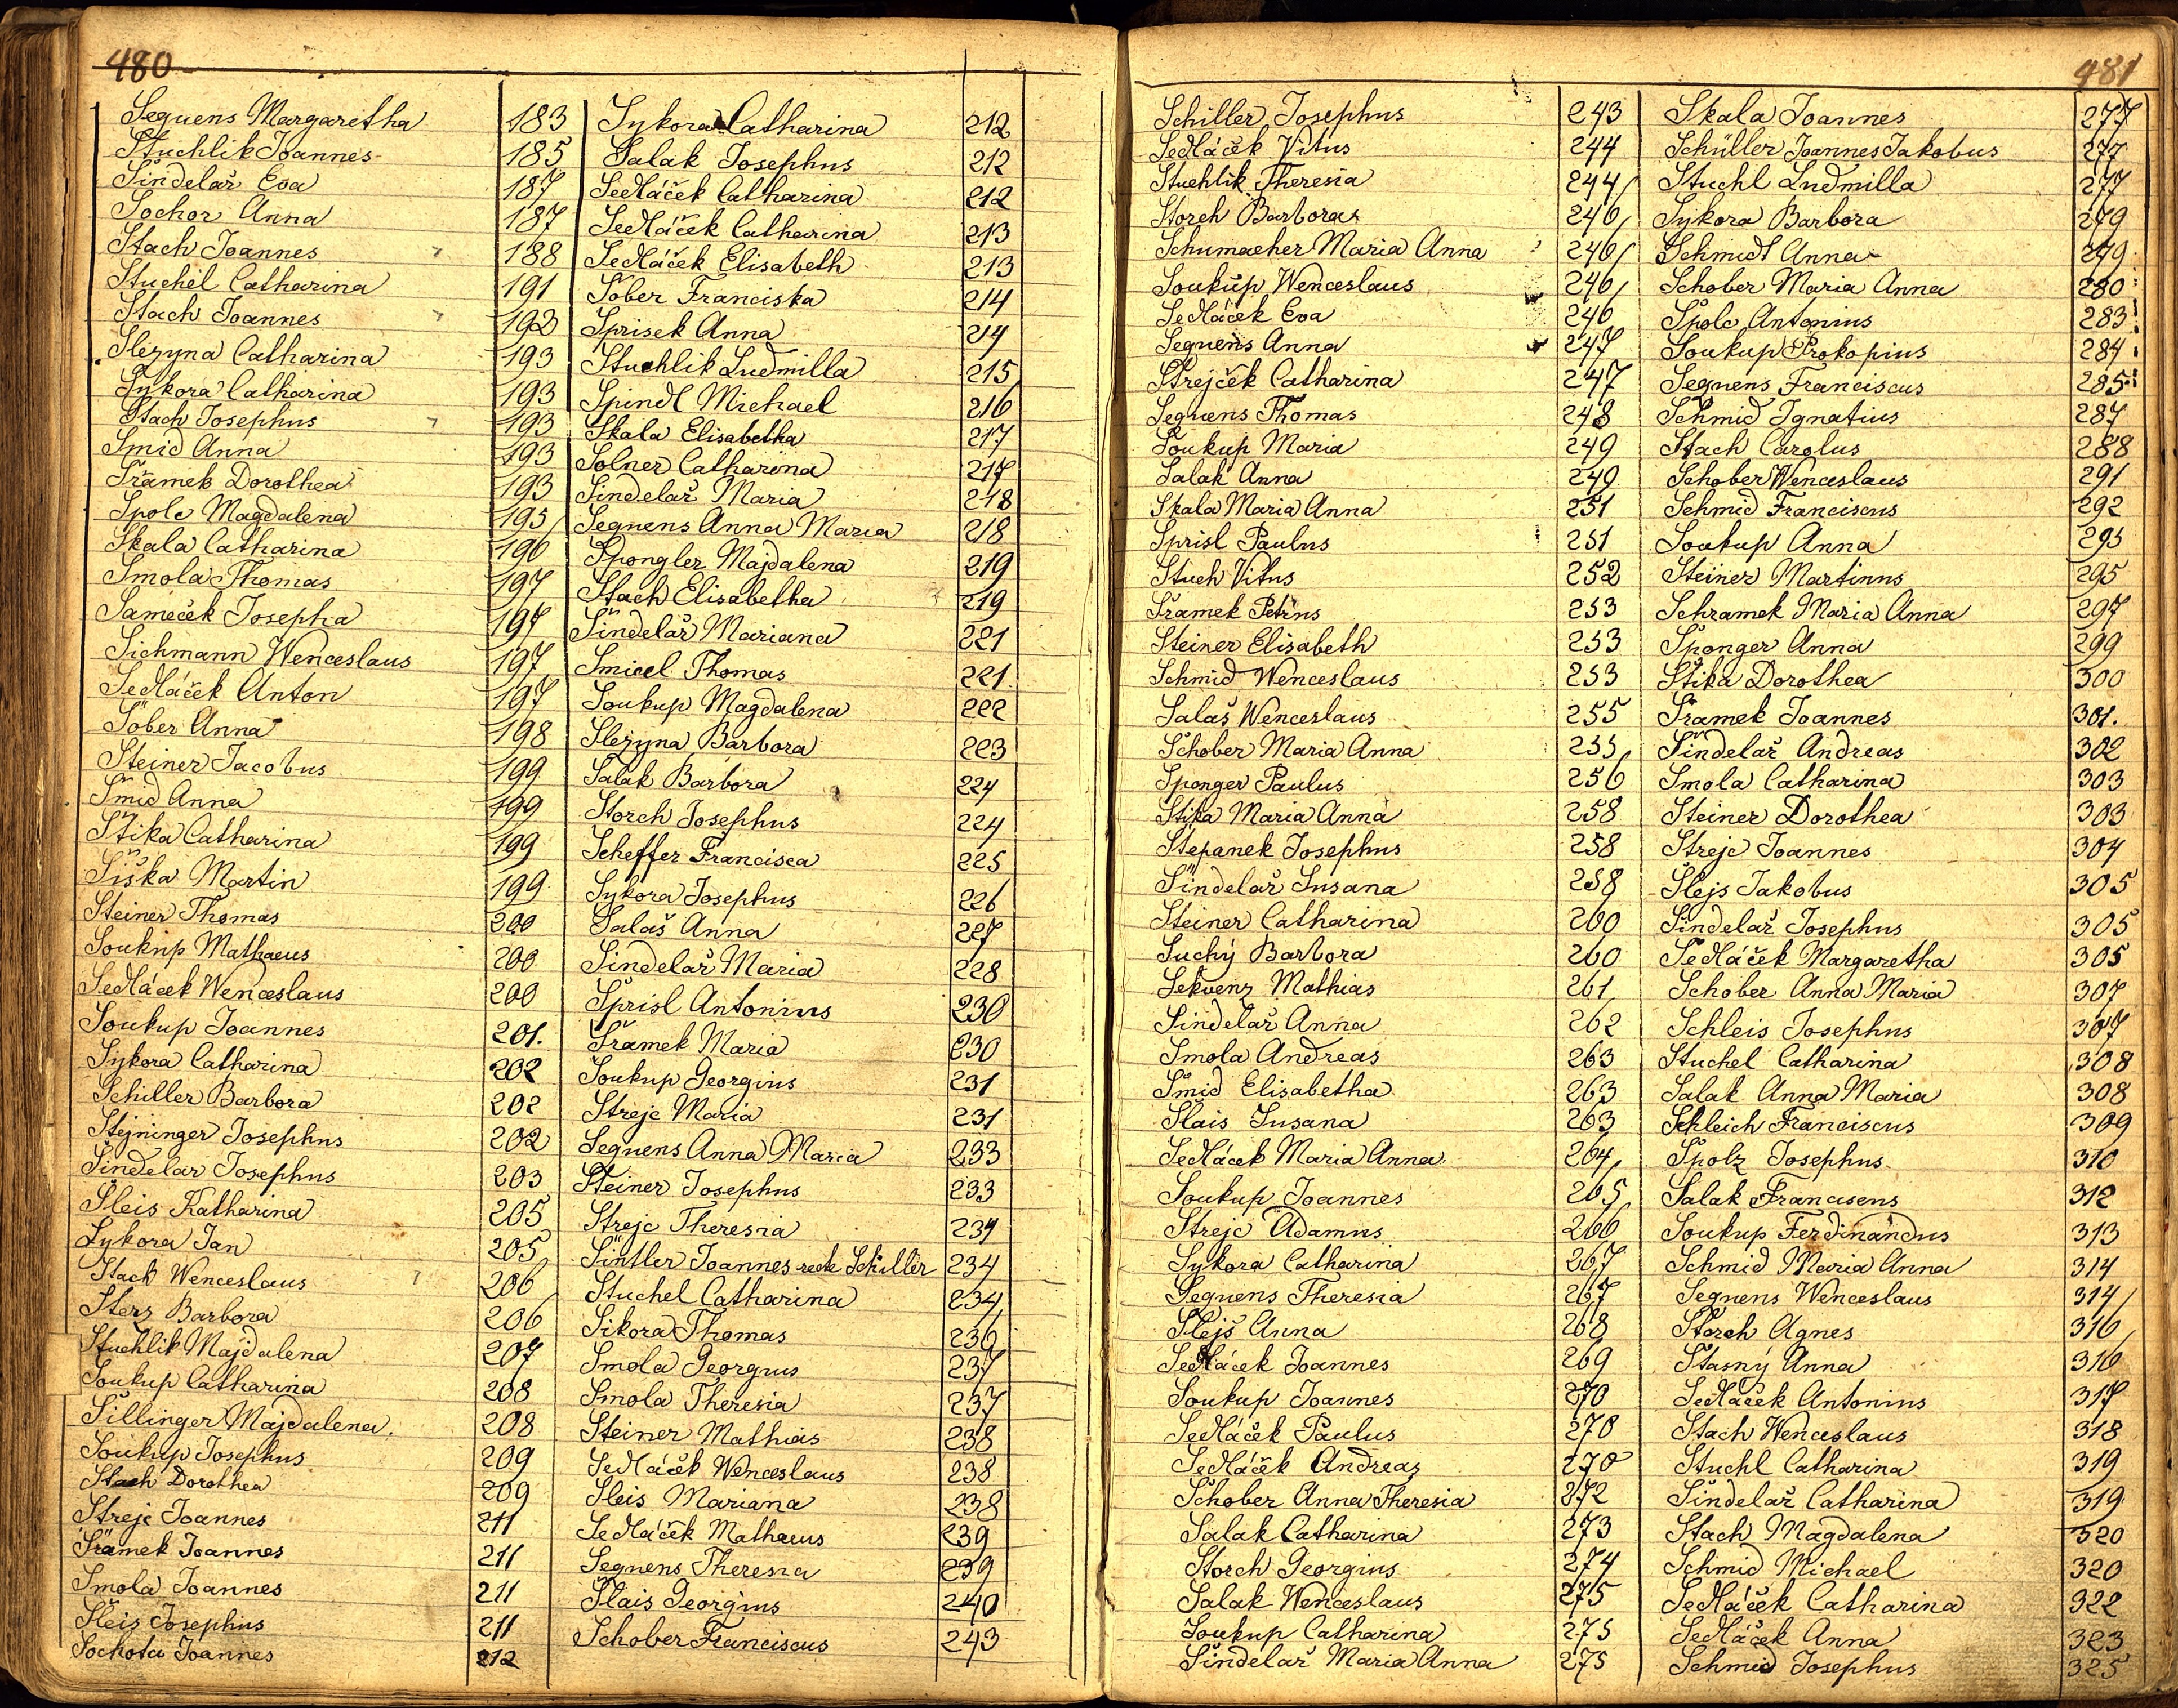 480
Seguens Margaretha 183
Stuchlik Joannes 185
Šindelař Eva 187
Sochor Anna 187
Stach Joannes 188
Stuchel Catharina 191
Stach Joannes 193
Slezyna Catharina 193
Sykora Catharina 193
Stach Josephus 193
Šmid Anna 193
Šramek Dorothea 193
Spolc Magdalena 195
Skala Catharina 196
Smola Thomas 197
Sameček Josepha 197
Sichmann Wenceslaus 197
Sedláček Anton 197
Šober Anna 198
Steiner Jacobus 199
Šmid Anna 199
Štika Catharina 199
Šiška Martin 199
Steiner Thomas 200
Soukup Mathaeus 200
Sedláček Wenceslaus 200
Soukup Joannes 201.
Sykora Catharina 202
Schiller Barbora 202
Stejninger Josephus 202
Šindelar Josephus 203
Šleis Katharina 205
Sykora Jan 205
Stach Wenceslaus 206
Sterz Barbora 206
Stuchlik Majdalena 207
Soukup Catharina 208
Sillinger Majdalena. 208
Soukup Josephus 209
Stach Dorothea 209
Streje Joannes 211
Šramek Joannes 211
Smola Joannes 211
Šleis Josephus 211
Sochota Joannes 212
Sykora Catharina 212
Salak Josephus 212
Sedláček Catharina 212
Sedláček Catharina 213
Sedláček Elisabeth 213
Šober Franciska 214
Sprisek Anna 214
Stuchlik Ludmilla 215
Spindl Michael 216
Skala Elisabetha 217
Solner Catharina 217
Šindelař Maria 218
Seguens Anna Maria 218
Spongler Majdalena 219
Stach Elisabetha 219
Šindelař Mariana 221
Smicel Thomas 221
Soukup Magdalena 222
Slezyna Barbora 223
Salak Barbora 224
Storch Josephus 224
Scheffer Francisca 225
Sykora Josephus 226
Salaš Anna 227
Šindelař Maria 228
Sprisl Antonius 230
Šramek Maria 230
Soukup Georgius 231
Streje Maria 231
Seguens Anna Maria 233
Steiner Josephus 233
Streje Theresia 234
Šintler Joannes recte Schiller 234
Stuchel Catharina 234
Sikora Thomas 236
Smola Georgius 237
Smola Theresia 237
Steiner Mathias 238
Sedláček Wenceslaus 238
Šleis Mariana 238
Sedláček Mathaeus 239
Seguens Theresia 239
Šlais Georgius 240
Schober Franciscus 243
481
Schiller Josephus 243
Sedláček Vitus 244
Stuchlik Theresia 244
Storch Barbora 246
Schumacher Maria Anna 246
Soukup Wenceslaus 246
Sedláček Eva 246
Seguens Anna 247
Strejček Catharina 247
Seguens Thomas 248
Soukup Maria 249
Salak Anna 249
Skala Maria Anna 251
Sprisl Paulus 251
Stuch Vitus 252
Šramek Petrus 253
Steiner Elisabeth 253
Schmid Wenceslaus 253
Salaš Wenceslaus 255
Schober Maria Anna 255
Sponger Paulus 256
Stika Maria Anna 258
Štepanek Josephus 258
Šindelař Susana 258
Steiner Catharina 260
Suchý Barbora 260
Sekvenz Mathias 261
Šindelař Anna 262
Smola Andreas 263
Šmid Elisabetha 263
Šlais Susana 263
Sedláček Maria Anna 264
Soukup Joannes 265
Streje Adamus 266
Sykora Catharina 267
Seguens Theresia 267
Šlejs Anna 268
Sedláček Joannes 269
Soukup Joannes 270
Sedláček Paulus 270
Sedláček Andreas 270
Schober Anna Theresia 272
Salak Catharina 273
Storch Georgius 274
Salak Wenceslaus 275
Soukup Catharina 275
Šindelař Maria Anna 275
Skala Joannes 277
Schüller Joannes Jakobus 277
Stuchl Ludmilla 277
Sykora Barbora 279
Schmidt Anna 279
Schober Maria Anna 280
Spolc Antonius 283
Soukup Prokopius 284
Seguens Franciscus 285
Schmid Ignatius 287
Stach Carolus 288
Schober Wenceslaus 291
Schmid Franciscus 292
Soukup Anna 295
Steiner Martinus 295
Schramek Maria Anna 297
Sponger Anna 299
Štika Dorothea 300
Šramek Joannes 301.
Šindelař Andreas 302
Smola Catharina 303
Steiner Dorothea 303
Streje Joannes 304
Šlejs Jakobus 305
Šindelař Josephus 305
Sedláček Margaretha 305
Schober Anna Maria 307
Schleis Josephus 307
Stuchel Catharina 308
Salak Anna Maria 308
Schleich Franciscus 309
Spolz Josephus 310
Salak Franciscus 312
Soukup Ferdinandus 313
Schmid Maria Anna 314
Seguens Wenceslaus 314
Storch Agnes 316
Štasný Anna 316
Sedláček Antonius 317
Stach Wenceslaus 318
Stuchl Catharina 319
Šindelař Catharina 319
Stach Magdalena 320
Schmid Michael 320
Sedláček Catharina 322
Sedláček Anna 323
Schmid Josephus 325